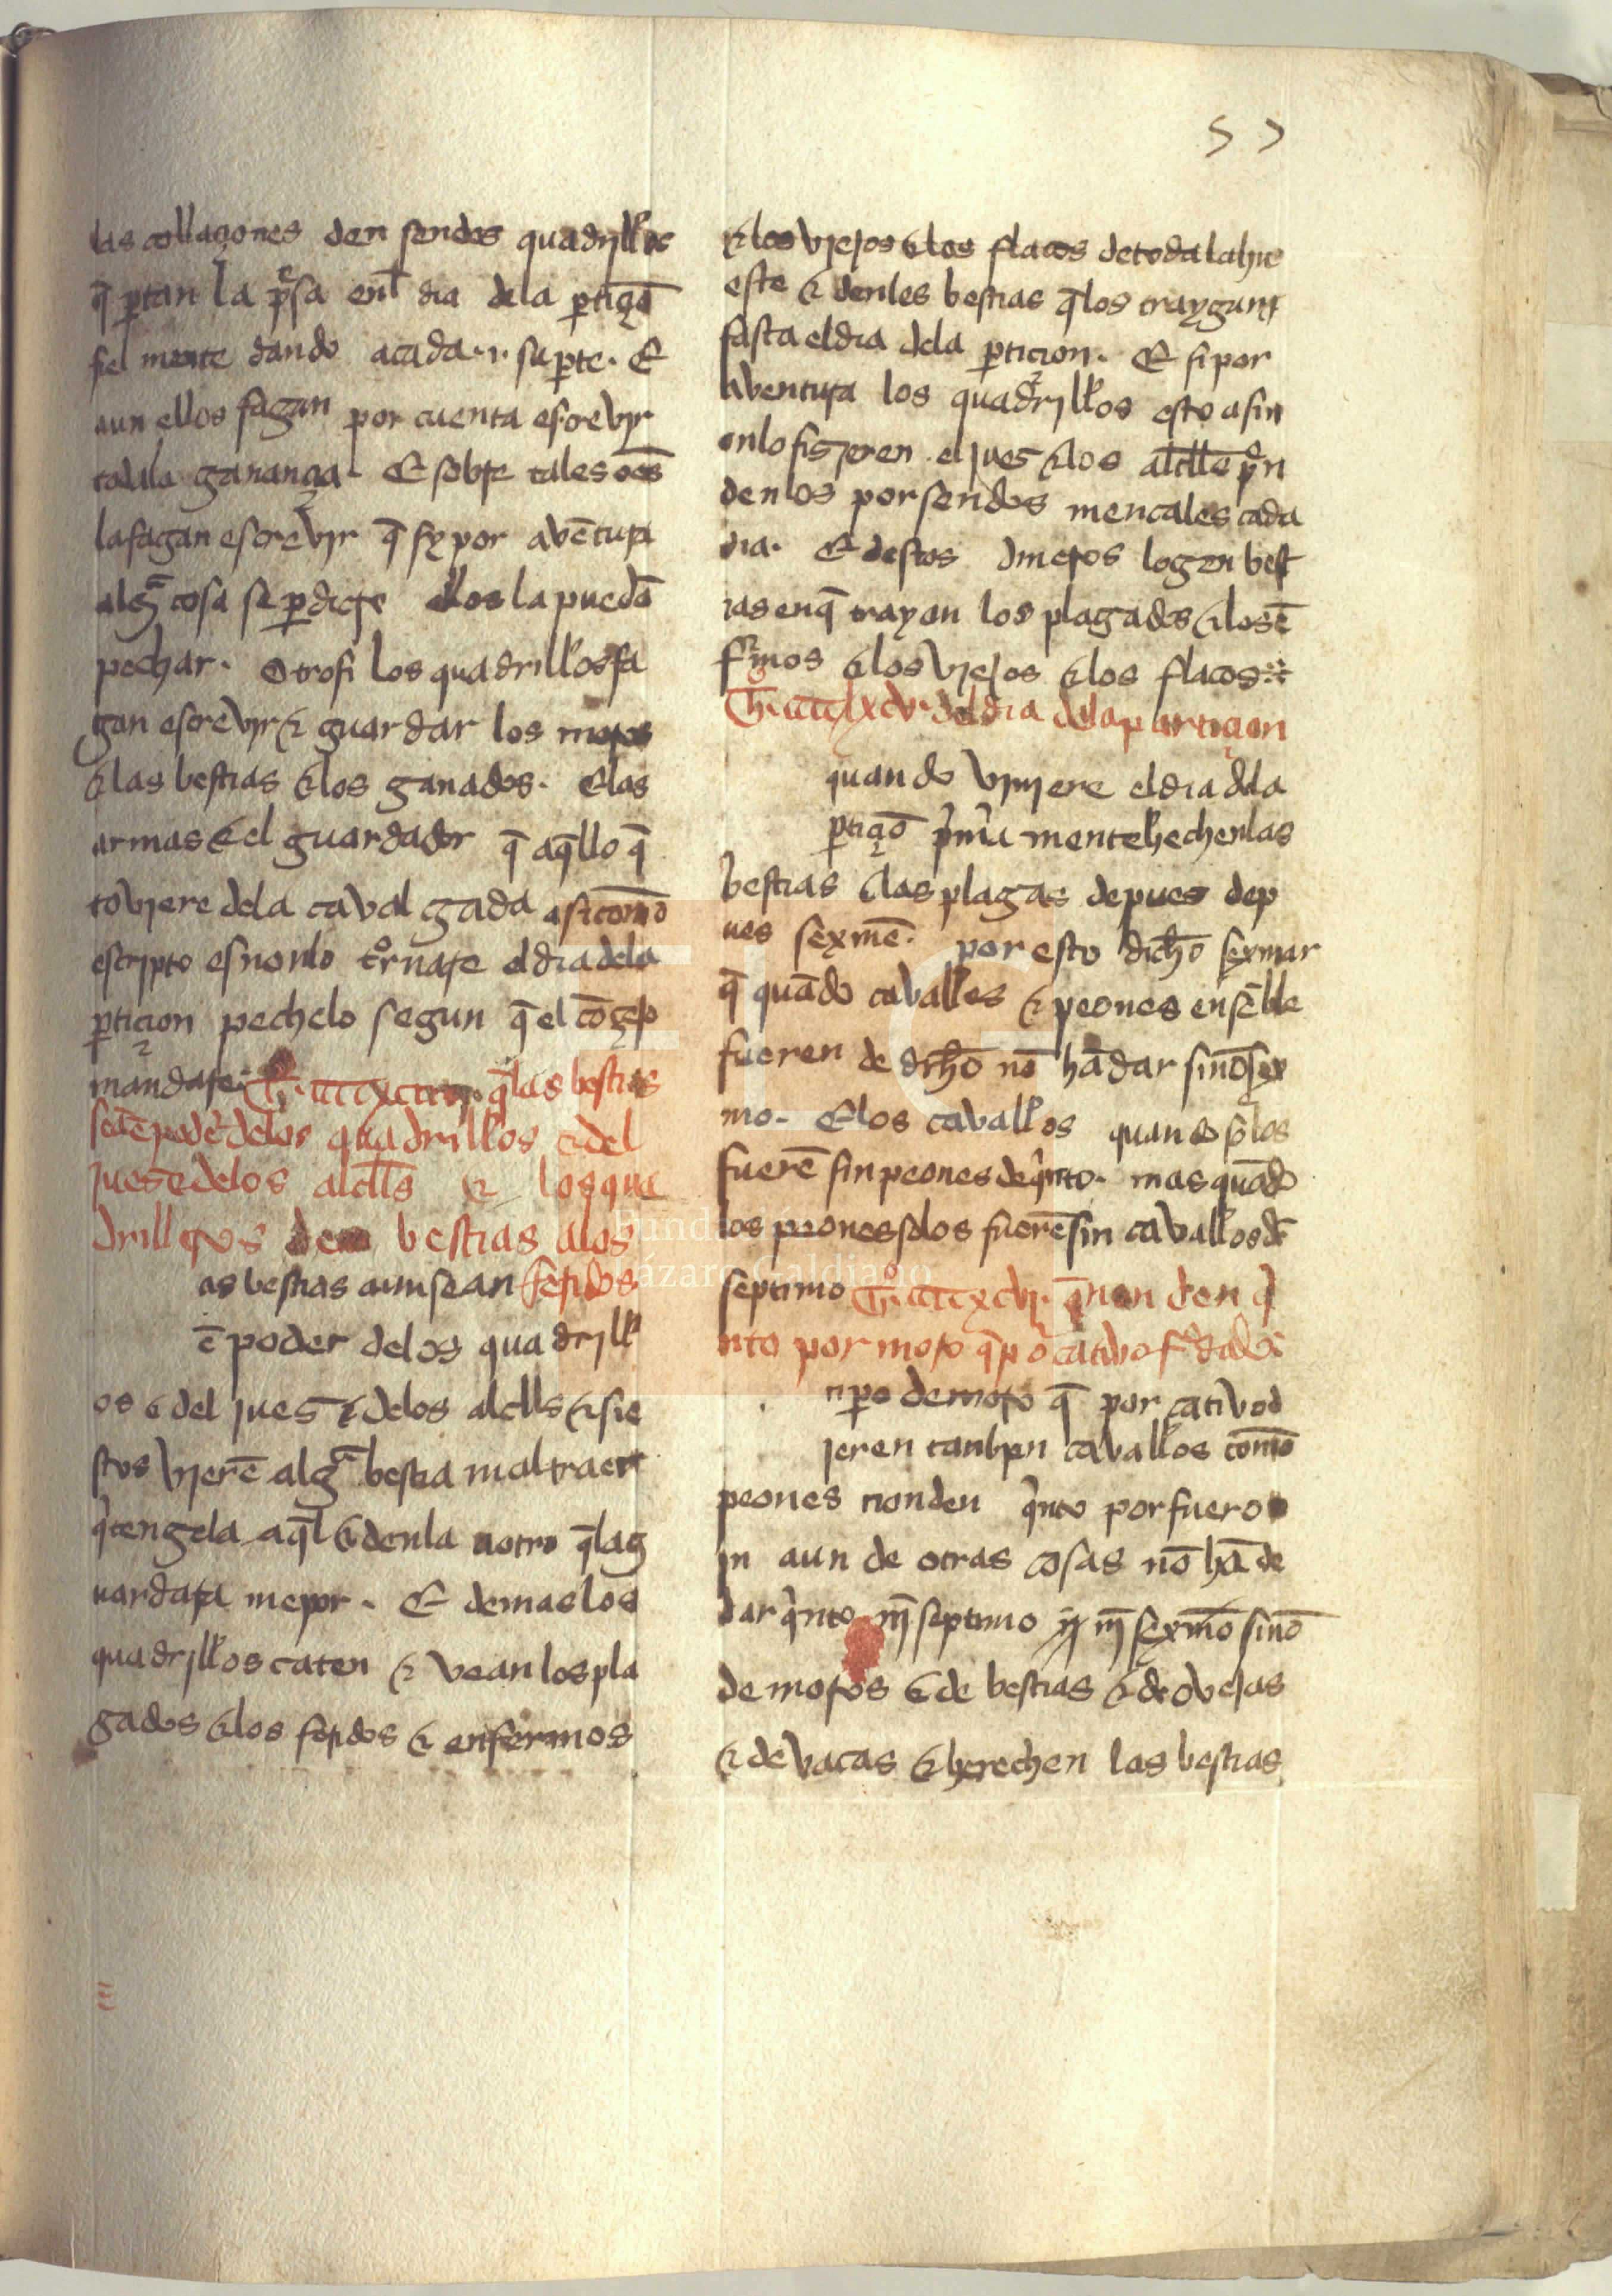 las collaçones den sendos quadrillos
q̄ p̱tan la p̄sa enl dia dela p̱tiçō
fiel mente dando acada .i. su p̱te. E
aun ellos fagan por cuenta escrevir
toda la ganançia. E sobre tales oēs
la fagan escrevir q̄ sy por avētura
algᵃ cosa se p̱diere ellos la puedā
pechar. Otrosi los quadrillosfa
gan escrevir & guardar los moros
& las bestias & los ganados. E las
armas & el guardador q̄ aq̄llo q̄
toviere dela cavalgada asi comō
escripto es non lo tᵒrnare el dia dela
p̱tiçion pechelo segun q̄ el cōçejo
mandare. q̄ las bestias
seā ē podᵉr delos quadrillos & del
jues & delos alclls & los qua
drilleros den bestias alos
feridos
as bestias aun sean
ē poder delos quadrill
os & del jues & delos alclls & si e
stos vierē algᵃ bestia mal traer
q̇tengela aq̄l & denla aotro q̄ la g
uardara mejor. E demas los
quadrillos caten & vean los pla
gados & los feridos & enfermos
57
& los viejos & los flacos detoda la hu
este & denles bestias q̄ los traygan
fasta el dia dela p̱ticion. E si por
aventura los quadrillos esto asi n
on lo fizieren el jues & los alclłłs pᵉn
den los por sendos mencales cada
dia. E destos dineros logen best
ias en q̄ trayan los plagados & los ē
fᵉrmos & los viejos & los flacos
Tᵒ. ccclxcv. del dia dela particion
quando viniere el dia dela
p̱tiçō pⁱmᵃ mente hechen las
bestias & las plagas depues dep
ues sexmē. por esto dicħo sexmar
q̄ quādo cavallᵒs & peones ensēble
fueren de drħo nō hā dar sinō sex
mo. E los cavallᵒs quando solos
fuerē sin peones de qⁱnto. mas quādo
los peones solos fuerē sin cavallᵒs dē
septimo Tᵒ. cccxcvi. q̄ non den qⁱ
nto por moro q̄ por cativo fᵉ dado
ti p̱o de moro q̄ por cativo d
ieren tanbien cavallᵒs comō
peones non den qⁱnto por fuero
in aun de otras cosas nō hā de
dar qⁱnto nī septimo nī sexmō sinō
de moros & de bestias & de ovejas
& de vacas & herechen las bestias